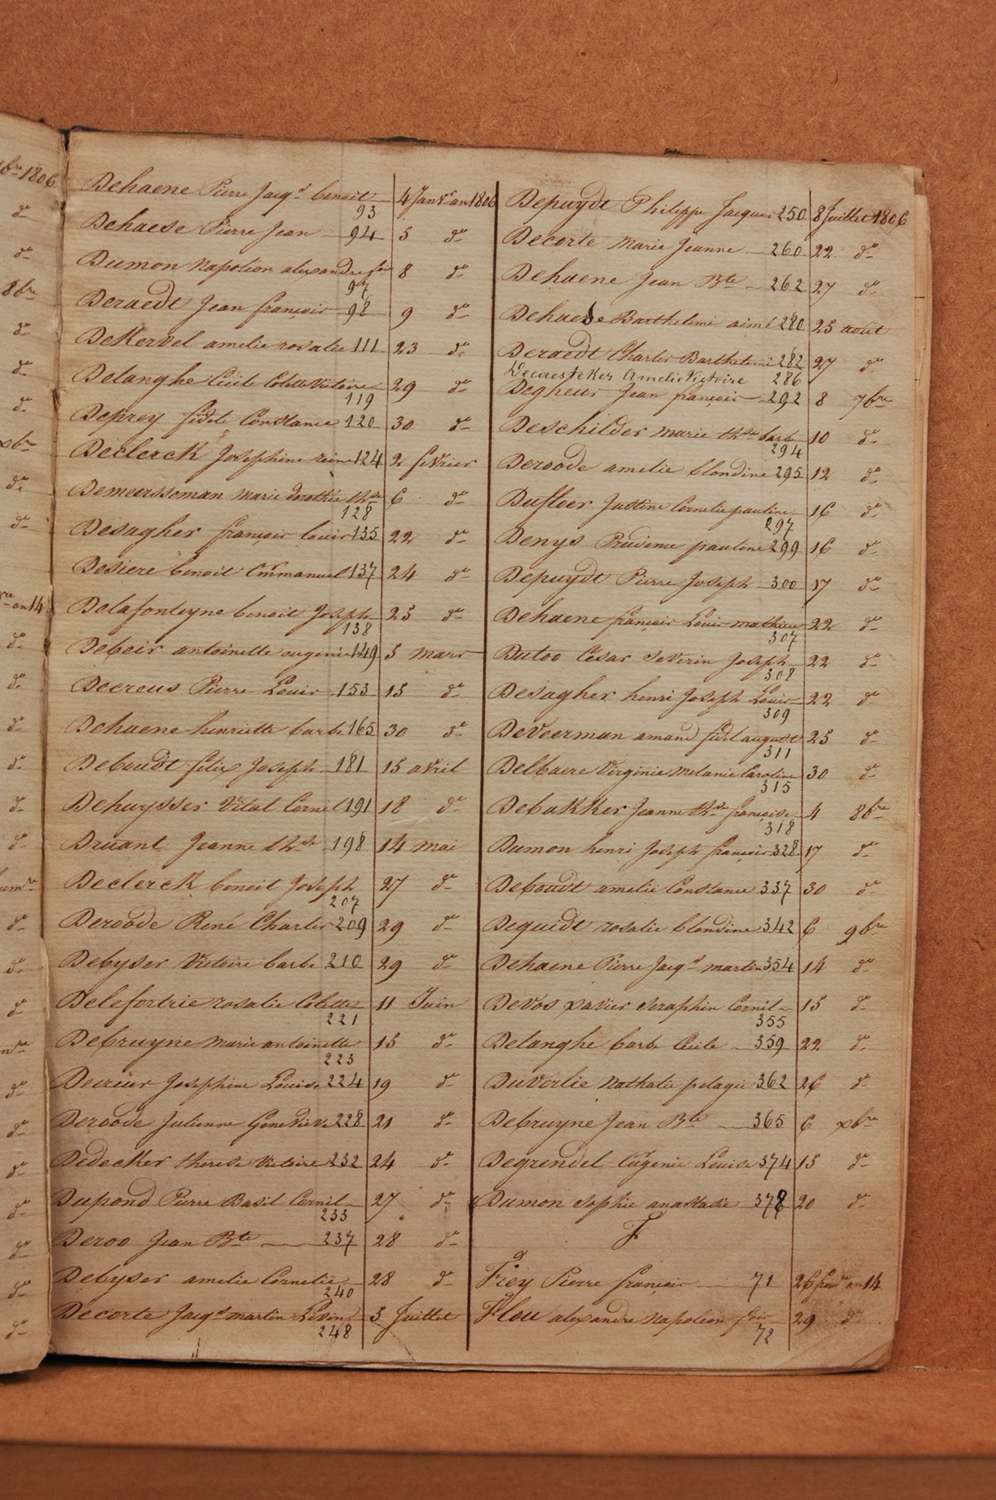 Dehaene Pierre Jacqs benoit 93 4 Janvr an 1806
Dehaese Pierre Jean 94 5 do
Dumon Napoléon alexandre 97 8 do
Deraedt Jean françois 98 9 do
DeKervel amelie rosalie 111 23 do
Delanghe Cécile Colette Victoire 119 29 do
Deprey fidel Constance 120 30 do
Declerck Josephine reine 124 2 février
Demeerssoman marie dorothée thse 128 6 do
Desagher françois louis 135 22 do
Desiere benoit Emmanuel 137 24 do
Delafonteyne benoit Joseph 138 25 do
Debeir antoinette eugenie 149 5 mars
Decreus Pierre Louis 153 15 do
Dehaene henriette barbe 165 30 do
Deboudt felix Joseph 181 15 avril
Dehuysser Vital Cornel 191 18 do
Druant Jeanne thse 198 14 mai
Declerck benoit Joseph 207 27 do
Deroode René Charles 209 29 do
Debyser Victoire barbe 210 29 do
Delefortrie rosalie Colette 221 11 Juin
Debruyne marie antoinette 223 15 do
Decrier Josephine Louise 224 19 do
Deroode Julienne Genevieve 228 21 do
Dedecker therese Victoire 232 24 do
Dupond Pierre Basil Cornil 233 27 do
Deroo Jean Bte 237 28 do
Debyser amelie Cornelie 240 28 do
Decorte Jacqs martin Livin 248 3 Juillet
Depuydt Philippe Jacques 250 8 Juillet 1806
Decorte marie Jeanne 260 22 do
Dehaene Jean Bte 262 27 do
Dehaese Barthelemi aimé 280 25 août
Deraedt Charles Barthelemi 282 27 do
Decaesteker Amelie Victoire 286
Degheus Jean françois 292 8 7bre
Deschilder marie thse barbe 294 10 do
Deroode amelie blondine 295 12 do
Dufloer Justine Cornelie pauline 297 16 do
Denys Prudence pauline 299 16 do
Depuydt Pierre Joseph 300 17 do
Dehaene françois Louis mathieu 307 22 do
Dutoo César Severin Joseph 308 22 do
Desagher henri Joseph Louis 309 22 do
DeVeerman amand fidel auguste 311 25 do
Delbaere Virginie Melanie Caroline 315 30 do
Debakker Jeanne thse françoise 318 4 8bre
Dumon henri Joseph françois 328 17 do
Deboudt amelie Constance 337 30 do
Dequidt rosalie blondine 342 6 9bre
Dehaene Pierre Jacqs martin 354 14 do
Devos xavier Seraphin Cornil 355 15 do
Delanghe barbe Cécile 359 22 do
Duverlie Nathalie pelagie 362 26 do
Debruyne Jean Bte 365 6 xbre
Degrendel Eugenie Louise 374 15 do
Dumon Sophie anastasie 378 20 do
F
Frey Pierre françois 71 an 14
Flou alexandre Napoleon 72 29 do